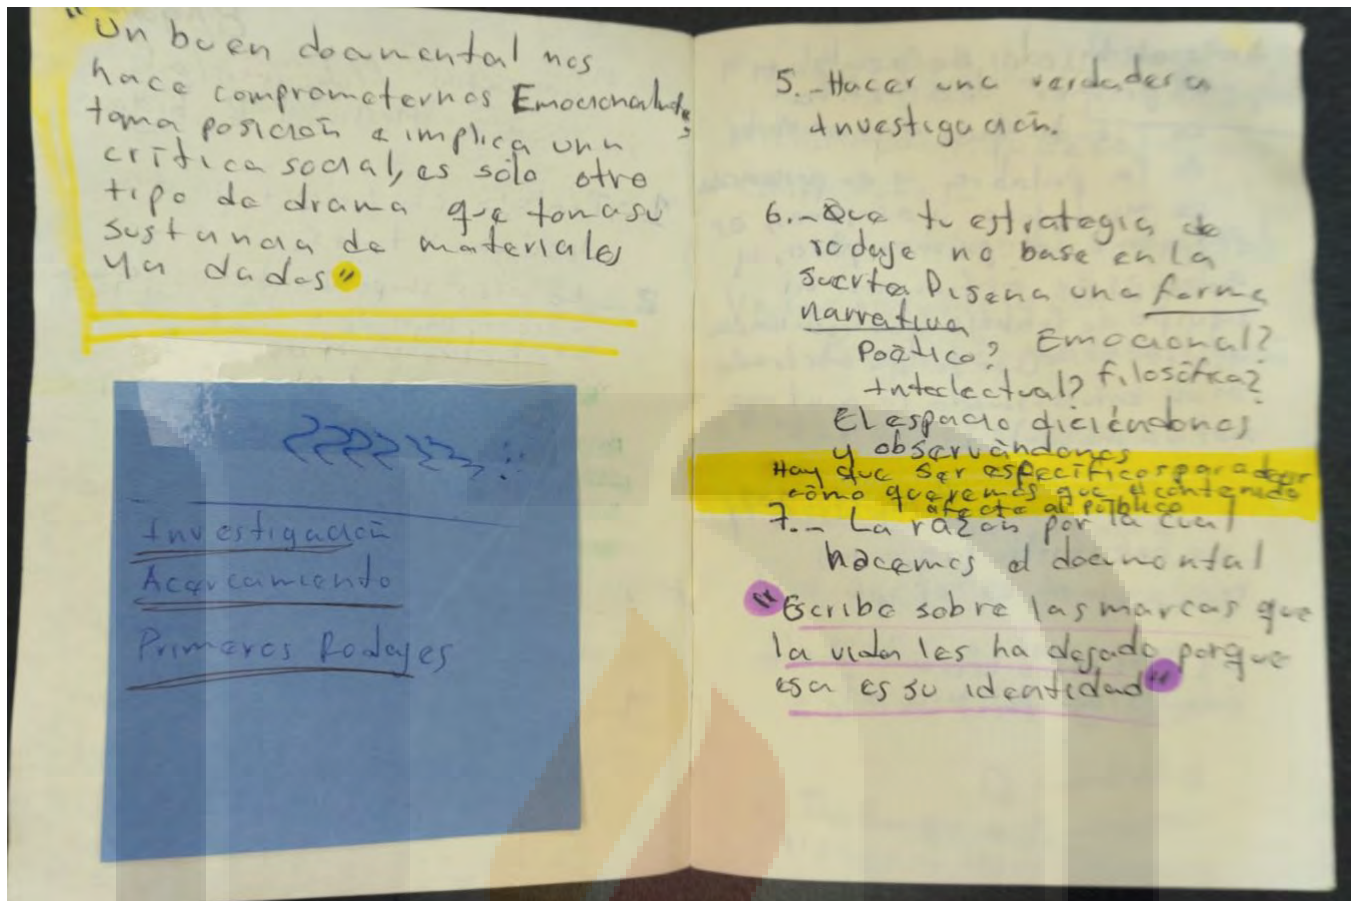 "Un buen documental nos
hace comprometernos Emocionalmente,
toma posición e implica una
crítica social, es sólo otro
tipo de drama que toma su
sustancia de materiales
ya dados"
Investigación
Acercamiento
Primeros Rodajes
5.- Hacer una verdadera
Investigación.
6.- Que tu estrategia de
rodaje no base en la
suerte Diseña una forma
narrativa
Poético? Emocional?
Intelectual? filosófica?
El espacio diciéndonos
y observándonos
Hay que ser específicos para decir
cómo queremos que el contenido
afecte al público
7.- La razón por la cual
hacemos el documental
"Escribe sobre las marcas que
la vida les ha dejado porque
esa es su identidad"